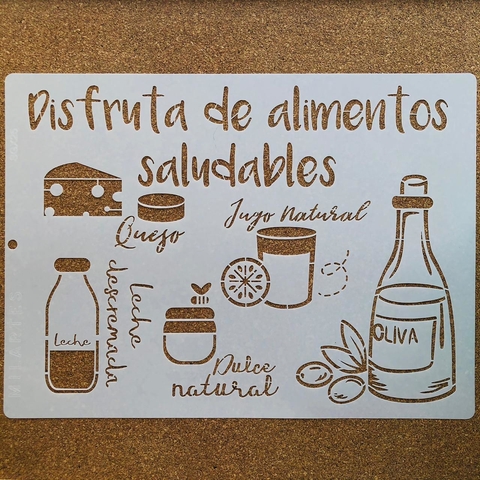 Disfruta de alimentos
saludables
Queso
Jugo Natural
Leche
descremada
Leche
Dulce
natural
OLIVA